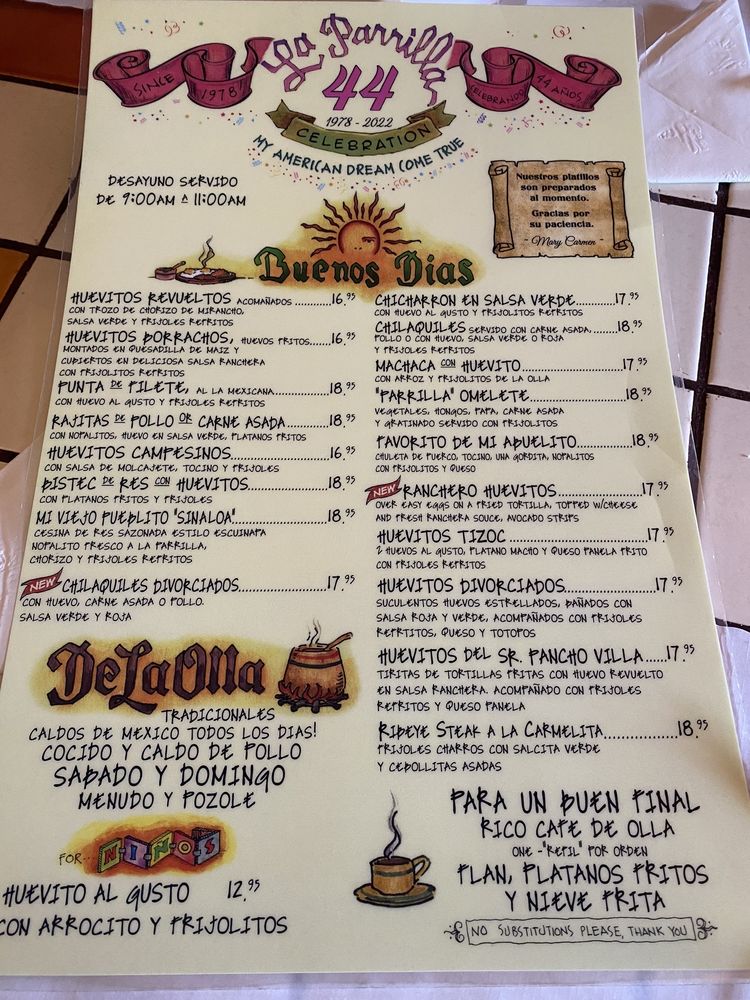 La Parrilla
SINCE 1978
44
CELEBRANDO 44 AÑOS
1978 - 2022
CELEBRATION
MY AMERICAN DREAM COME TRUE
DESAYUNO SERVIDO
DE 9:00AM A 11:00AM
Nuestros platillos
son preparados
al momento.
Gracias por
su paciencia.
- Mary Carmen -
Buenos Dias
HUEVITOS REVUELTOS ACOMAÑADOS ..........16.95
CON TROZO DE CHORIZO DE MIRANCHO,
SALSA VERDE Y FRIJOLES REFRITOS
HUEVITOS BORRACHOS, HUEVOS FRITOS.......16.95
MONTADOS EN QUESADILLA DE MAIZ Y
CUBIERTOS EN DELICIOSA SALSA RANCHERA
CON FRIJOLITOS REFRITOS
PUNTA DE FILETE, AL LA MEXICANA..............18.95
CON HUEVO AL GUSTO Y FRIJOLES REFRITOS
RAJITAS DE POLLO OR CARNE ASADA..........18.95
CON NOPALITOS, HUEVO EN SALSA VERDE, PLATANOS FRITOS
HUEVITOS CAMPESINOS......................16.95
CON SALSA DE MOLCAJETE, TOCINO Y FRIJOLES
BISTEC DE RES CON HUEVITOS................18.95
CON PLATANOS FRITOS Y FRIJOLES
MI VIEJO PUEBLITO "SINALOA"..................18.95
CESINA DE RES SAZONADA ESTILO ESCUINAPA
NOPALITO FRESCO A LA PARRILLA,
CHORIZO Y FRIJOLES REFRITOS
NEW CHILAQUILES DIVORCIADOS..................17.95
CON HUEVO, CARNE ASADA O POLLO.
SALSA VERDE Y ROJA
DeLaOlla
TRADICIONALES
CALDOS DE MEXICO TODOS LOS DIAS!
COCIDO Y CALDO DE POLLO
SABADO Y DOMINGO
MENUDO Y POZOLE
FOR... N-I-Ñ-O-S
HUEVITO AL GUSTO 12.95
CON ARROCITO Y FRIJOLITOS
CHICHARRON EN SALSA VERDE............17.95
CON HUEVO AL GUSTO Y FRIJOLITOS REFRITOS
CHILAQUILES SERVIDO CON CARNE ASADA,.......18.95
POLLO O CON HUEVO, SALSA VERDE O ROJA
Y FRIJOLES REFRITOS
MACHACA CON HUEVITO....................17.95
CON ARROZ Y FRIJOLITOS DE LA OLLA
"PARRILLA" OMELETE........................18.95
VEGETALES, HONGOS, PAPA, CARNE ASADA
Y GRATINADO SERVIDO CON FRIJOLITOS
FAVORITO DE MI ABUELITO..............18.95
CHULETA DE PUERCO, TOCINO, UNA GORDITA, NOPALITOS
CON FRIJOLITOS Y QUESO
NEW RANCHERO HUEVITOS..................17.95
OVER EASY EGGS ON A FRIED TORTILLA, TOPPED W/CHEESE
AND FRESH RANCHERA SOUCE, AVOCADO STRIPS
HUEVITOS TIZOC ............................17.95
2 HUEVOS AL GUSTO, PLATANO MACHO Y QUESO PANELA FRITO
CON FRIJOLES REFRITOS
HUEVITOS DIVORCIADOS..................17.95
SUCULENTOS HUEVOS ESTRELLADOS, BAÑADOS CON
SALSA ROJA Y VERDE, ACOMPAÑADOS CON FRIJOLES
REFRTITOS, QUESO Y TOTOPOS
HUEVITOS DEL SR. PANCHO VILLA.....17.95
TIRITAS DE TORTILLAS FRITAS CON HUEVO REVUELTO
EN SALSA RANCHERA. ACOMPAÑADO CON FRIJOLES
REFRITOS Y QUESO PANELA
RIBEYE STEAK A LA CARMELITA................18.95
FRIJOLES CHARROS CON SALCITA VERDE
Y CEBOLLITAS ASADAS
PARA UN BUEN FINAL
RICO CAFE DE OLLA
ONE -"REFIL" POR ORDEN
FLAN, PLATANOS FRITOS
Y NIEVE FRITA
NO SUBSTITUTIONS PLEASE, THANK YOU